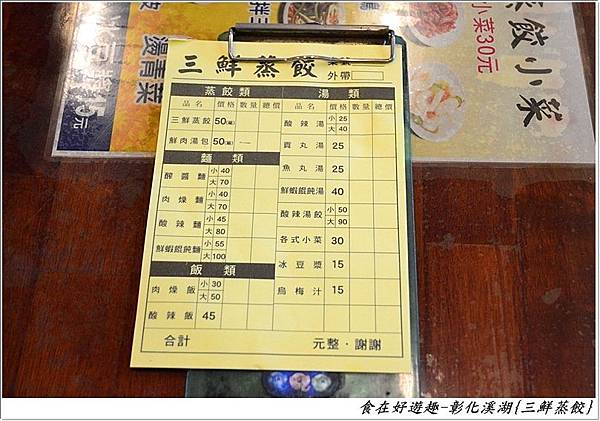 三鮮蒸餃
外帶
蒸餃類
品名 價格 數量 總價
三鮮蒸餃 50(籠)
鮮肉湯包 50(籠)
麵類
醡醬麵 小 40
大 70
肉燥麵 小 40
大 70
酸辣麵 小 45
大 80
鮮蝦餛飩麵 小 55
大 100
飯類
肉燥飯 小 30
大 50
酸辣飯 45
湯類
品名 價格 數量 總價
酸辣湯 小 25
大 40
貢丸湯 25
魚丸湯 25
鮮蝦餛飩湯 40
酸辣湯餃 小 50
大 90
各式小菜 30
冰豆漿 15
烏梅汁 15
合計 元整·謝謝
蒸餃小菜
小菜30元
燙青菜
元
食在好遊趣-彰化溪湖{三鮮蒸餃}